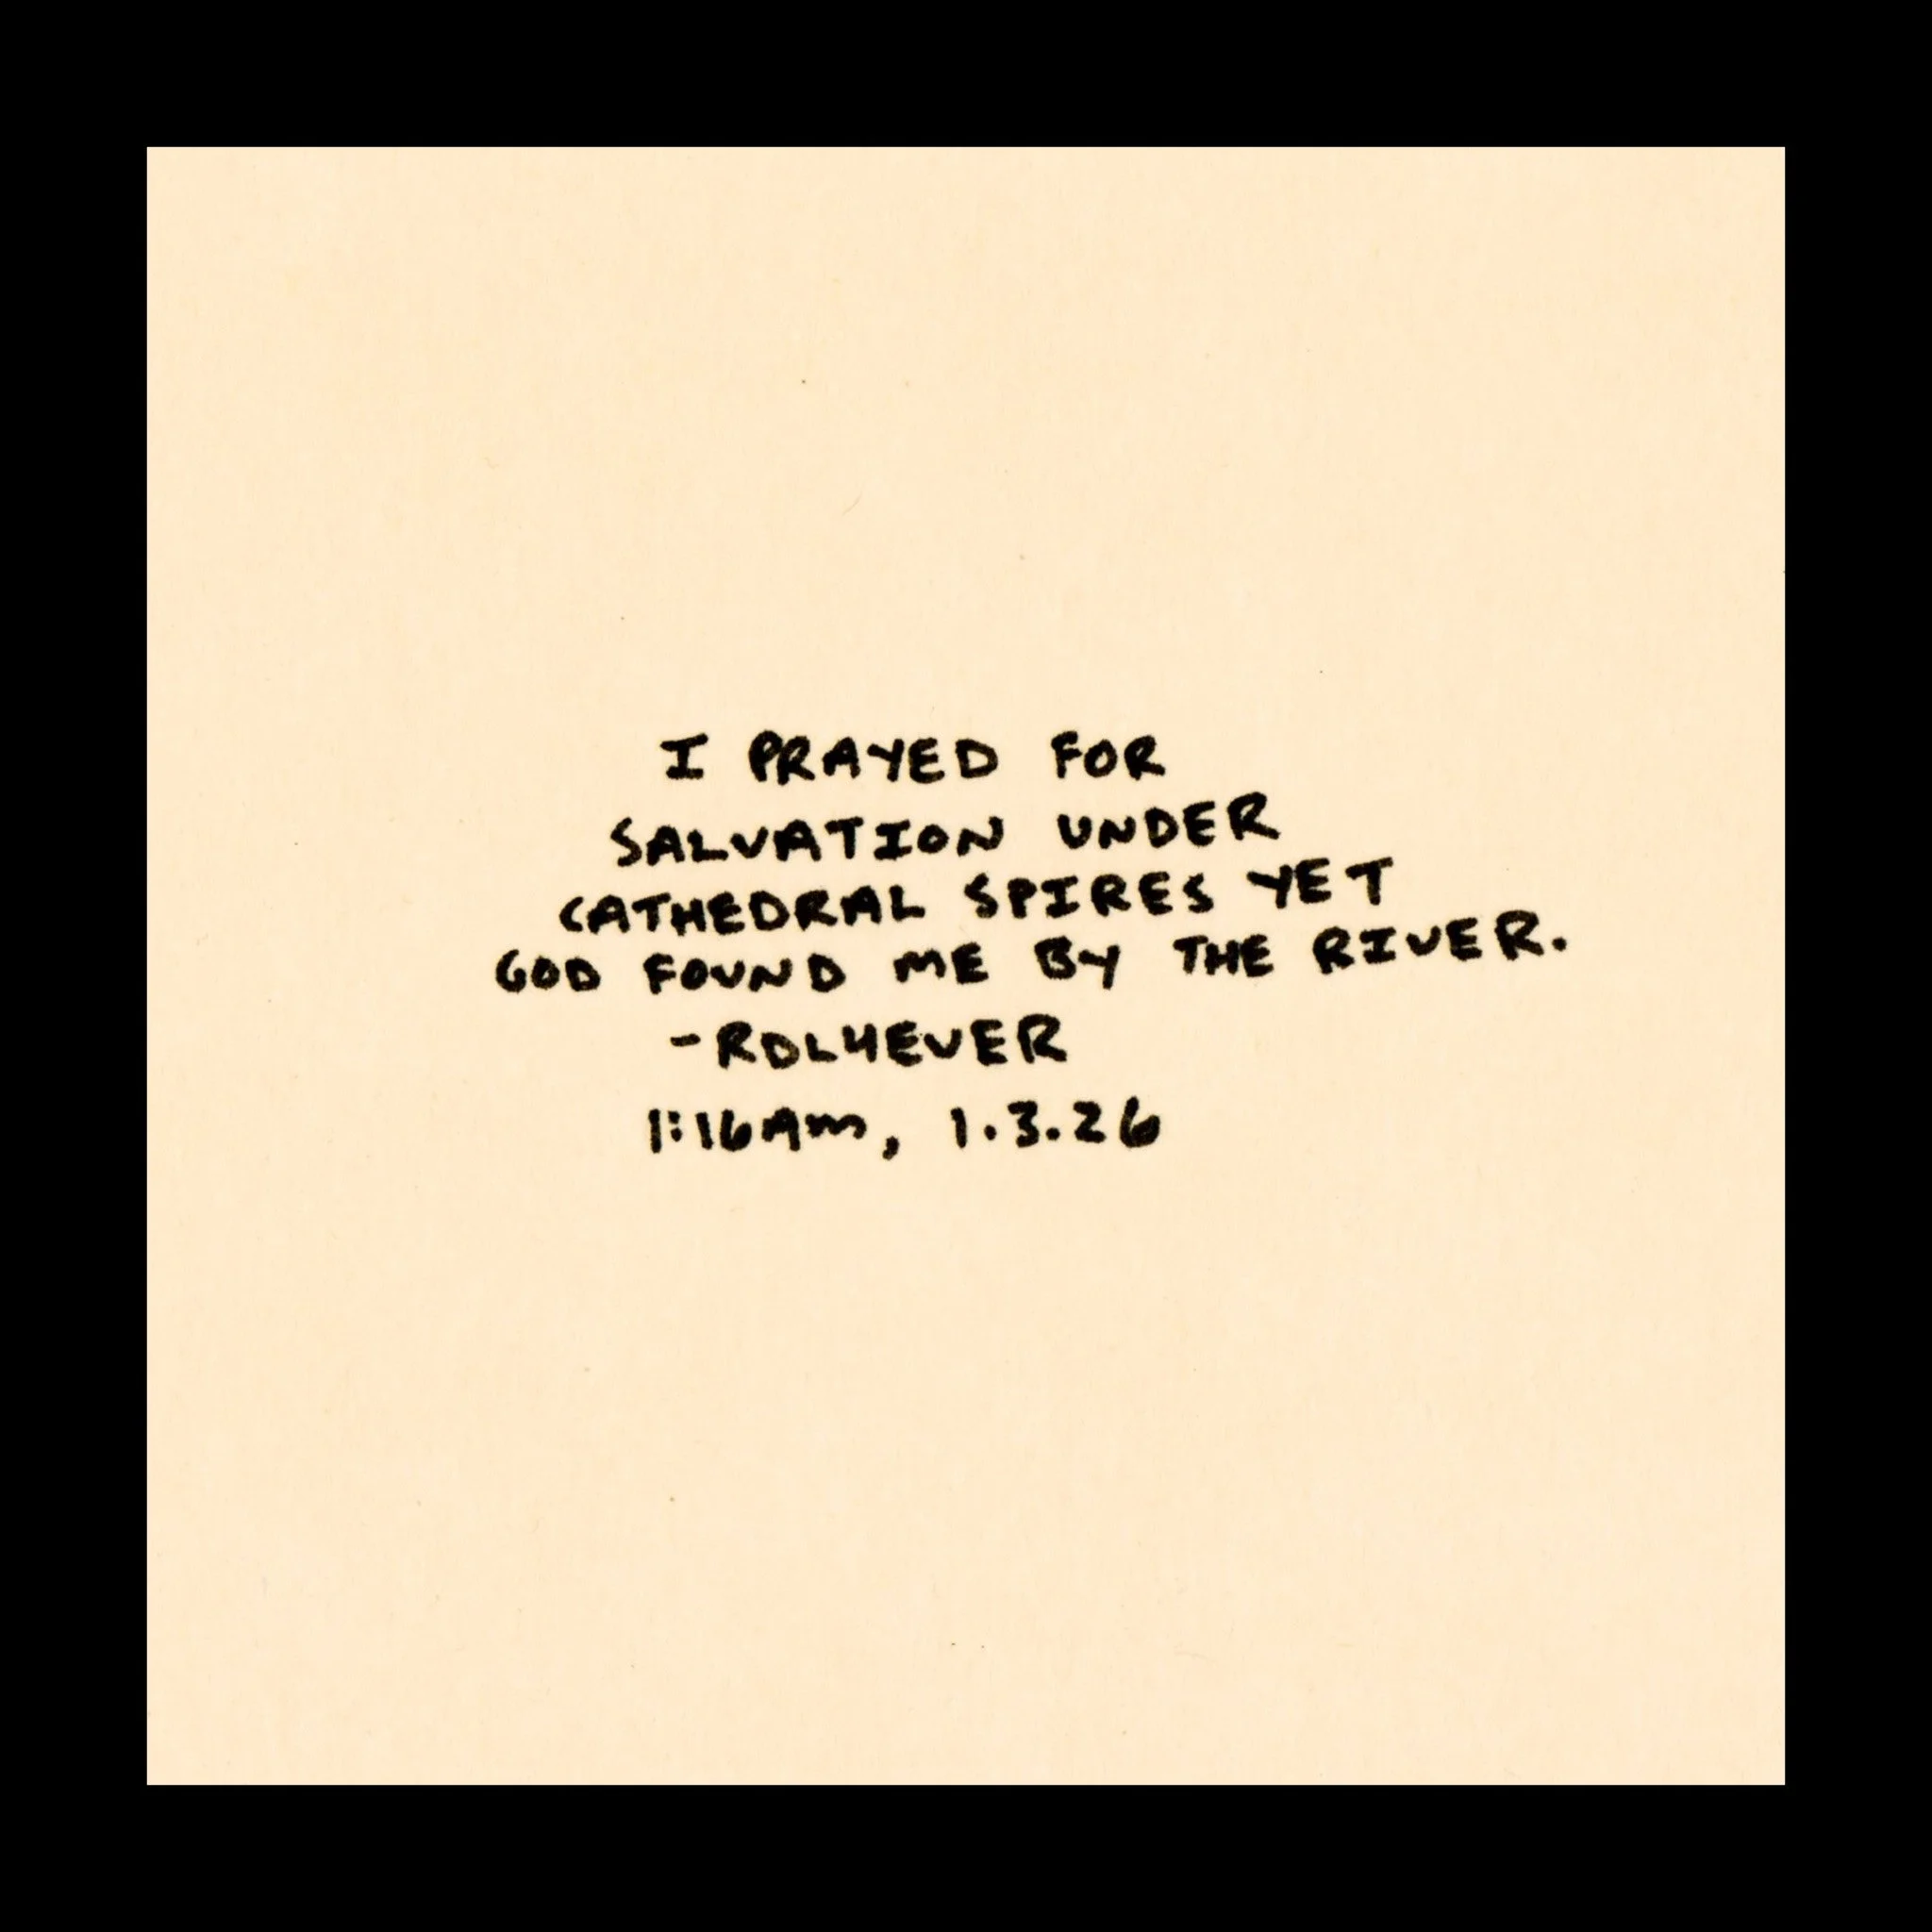 I PRAYED FOR
SALVATION UNDER
CATHEDRAL SPIRES YET
GOD FOUND ME BY THE RIVER.
-RDL4EVER
1:16AM, 1.3.26